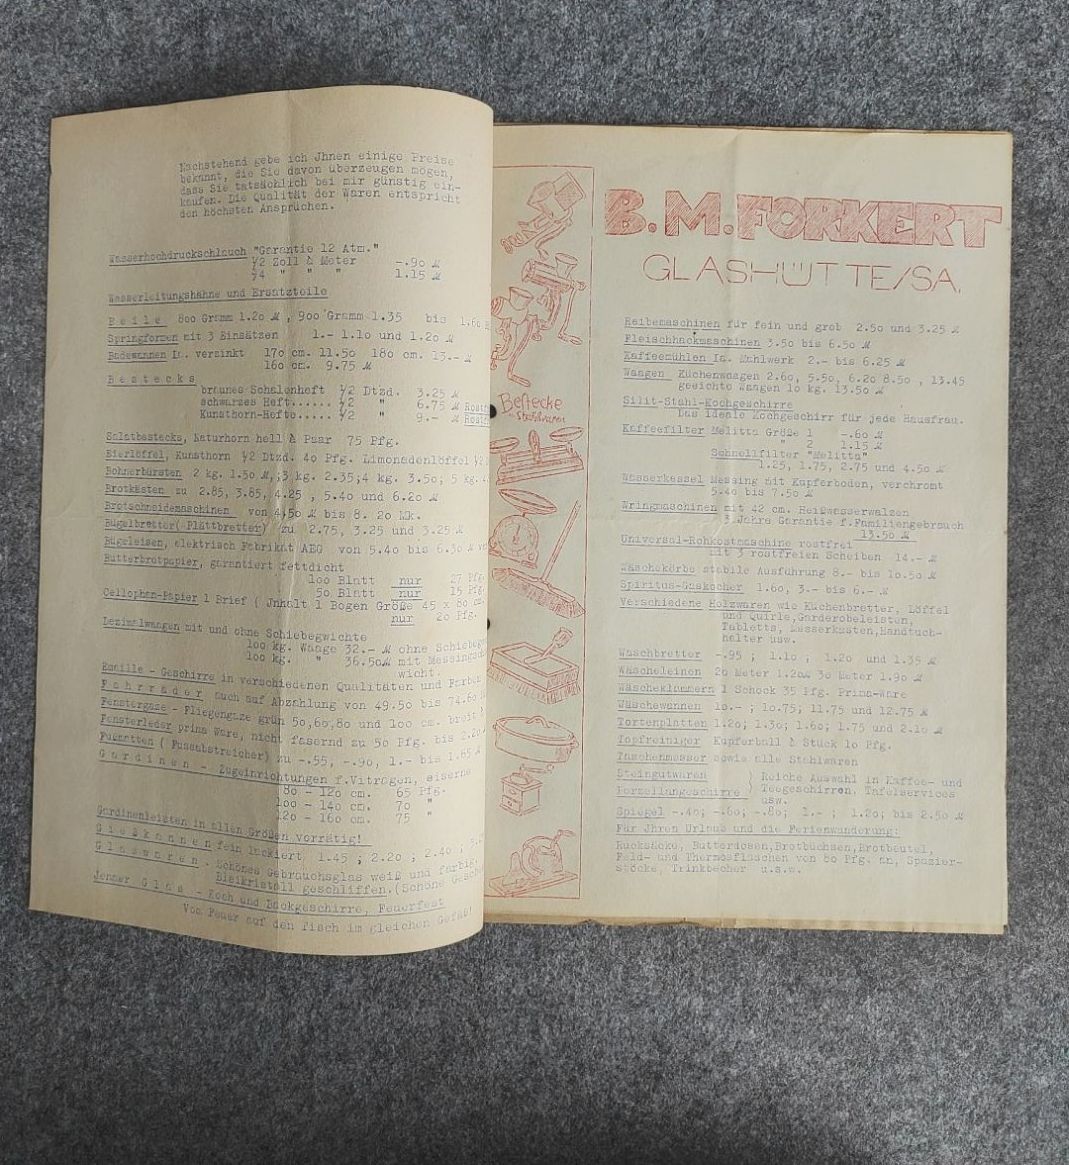 Nachstehend gebe ich Jhnen einige Preise
bekannt, die Sie davon überzeugen mögen,
dass Sie tatsächlich bei mir günstig ein-
kaufen. Die Qualität der Waren entspricht
den höchsten Ansprüchen.
Wasserhochdruckschlauch "Garantie 12 Atm."
1/2 Zoll à Meter -.90 M
3/4 " " " 1.15 M
Wasserleitungshähne und Ersatzteile
Beile 800 Gramm 1.20 M, 900 Gramm 1.35 bis 1.60
Springformen mit 3 Einsätzen 1.- 1.10 und 1.20 M
Badewannen Ia. verzinkt 170 cm. 11.50 180 cm. 13.- M
160 cm. 9.75 M
Bestecks
braunes Schalenheft 1/2 Dtzd. 3.25 M
schwarzes Heft...... 1/2 " 6.75 M
Kunsthorn-Hefte..... 1/2 " 9.- M
Salatbestecks, Naturhorn hell à Paar 75 Pfg.
Eierlöffel, Kunsthorn 1/2 Dtzd. 40 Pfg. Limonadenlöffel 1/2
Bohnerbürsten 2 kg. 1.50 M,;3 kg. 2.35;4 kg. 3.50; 5 kg.
Brotkästen zu 2.85, 3.65, 4.25 , 5.40 und 6.20 M
Brotschneidemaschinen von 4,50 M bis 8. 20 Mk.
Bügelbretter(Plättbretter) zu 2.75, 3.25 und 3.25 M
Bügeleisen, elektrisch Fabrikat AEG von 5.40 bis 6.30 M
Butterbrotpapier, garantiert fettdicht
100 Blatt nur 27 Pfg.
50 Blatt nur 15 Pfg.
Cellophan-Papier 1 Brief ( Jnhalt 1 Bogen Größe 45 x 80 cm.
nur 20 Pfg.
Dezimalwagen mit und ohne Schiebegewichte
100 kg. Waage 32.- M ohne Schiebege
100 kg. " 36.50M mit Messingsch
wicht.
Emaille - Geschirre in verschiedenen Qualitäten und Farben
Fahrräder auch auf Abzahlung von 49.50 bis 74.60
Fenstergase - Fliegengaze grün 50,60,80 und 100 cm. breit
Fensterleder prima Ware, nicht fasernd zu 50 Pfg. bis 2.20
Fussmatten ( Fussabstreicher) zu -.55, -.90, 1.- bis 1.65 M
Gardinen - Zugeinrichtungen f.Vitragen, eiserne
80 - 120 cm. 65 Pfg.
100 - 140 cm. 70 "
120 - 160 cm. 75 "
Gardinenleisten in allen Größen vorrätig!
Gießkannen fein lackiert, 1.45 ; 2.20 ; 2.40 ;
Glaswaren. Schönes Gebrauchsglas weiß und farbig
Bleikristall geschliffen.(Schöne Gesche
Jenaer Glas - Koch und Backgeschirre, Feuerfest
Vom Feuer auf den Tisch im gleichen Gefäß!
Bestecke
Stahlwaren
B.M.FORKERT
GLASHÜTTE/SA.
Reibemaschinen für fein und grob 2.50 und 3.25 M
Fleischhackmaschinen 3.50 bis 6.50 M
Kaffeemühlen Ia. Mahlwerk 2.- bis 6.25 M
Waagen Küchenwaagen 2.60, 5.50, 6.20 8.50 , 13.45
geeichte Waagen 10 kg. 13.50 M
Silit-Stahl-Kochgeschirre
Das ideale Kochgeschirr für jede Hausfrau.
Kaffeefilter Melitta Größe 1 -.60 M
" 2 1.15 M
Schnellfilter "Melitta"
1.25, 1.75, 2.75 und 4.50 M
Wasserkessel Messing mit Kupferboden, verchromt
5.40 bis 7.50 M
Wringmaschinen mit 42 cm. Heißwasserwalzen
3 Jahre Garantie f.Familiengebrauch
13.50 M
Universal-Rohkostmaschine rostfrei
mit 3 rostfreien Scheiben 14.- M
Wäschekörbe stabile Ausführung 8.- bis 10.50 M
Spiritus-Gaskocher 1.60, 3.- bis 6.- M
Verschiedene Holzwaren wie Küchenbretter, Löffel
und Quirle,Garderobeleisten,
Tabletts, Messerkästen,Handtuch-
halter usw.
Waschbretter -.95 ; 1.10 ; 1.20 und 1.35 M
Wäscheleinen 20 Meter 1.20M 30 Meter 1.90 M
Wäscheklammern 1 Schock 35 Pfg. Prima-Ware
Wäschewannen 10.- ; 10.75; 11.75 und 12.75 M
Tortenplatten 1.20; 1.30; 1.60; 1.75 und 2.10 M
Topfreiniger Kupferball à Stück 10 Pfg.
Taschenmesser sowie alle Stahlwaren
Steingutwaren } Reiche Auswahl in Kaffee- und
Porzellangeschirre Teegeschirren, Tafelservices
usw.
Spiegel -.40; -.60; -.80; 1.- ; 1.20; bis 2.50 M
Für Jhren Urlaub und die Ferienwanderung:
Rucksäcke, Butterdosen,Brotbüchsen,Brotbeutel,
Feld- und Thermosflaschen von 80 Pfg. an, Spazier-
stöcke, Trinkbecher u.s.w.